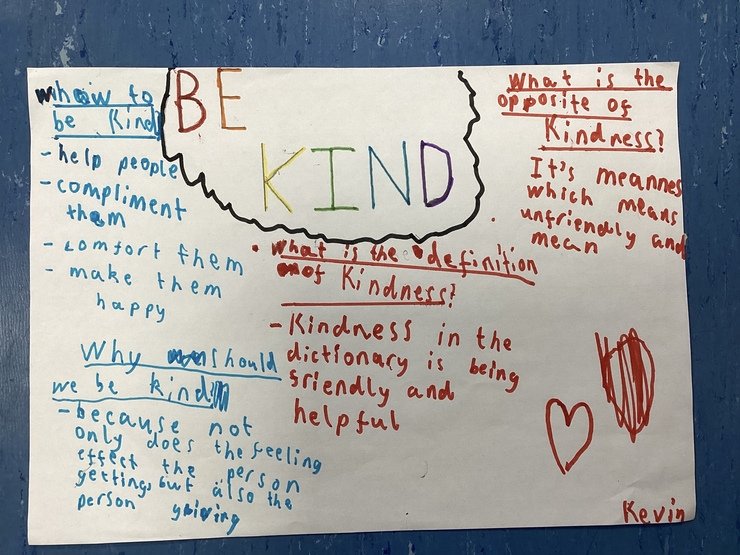 BE
KIND
how to
be Kind
- help people
- compliment
them
- comfort them
- make them
happy
Why should
we be kind
- because not
only does the feeling
effect the person
getting but also the
person giving
• What is the definition
of Kindness?
- Kindness in the
dictionary is being
friendly and
helpful
What is the
opposite of
Kindness?
It's meannes
which means
unfriendly and
mean
Kevin